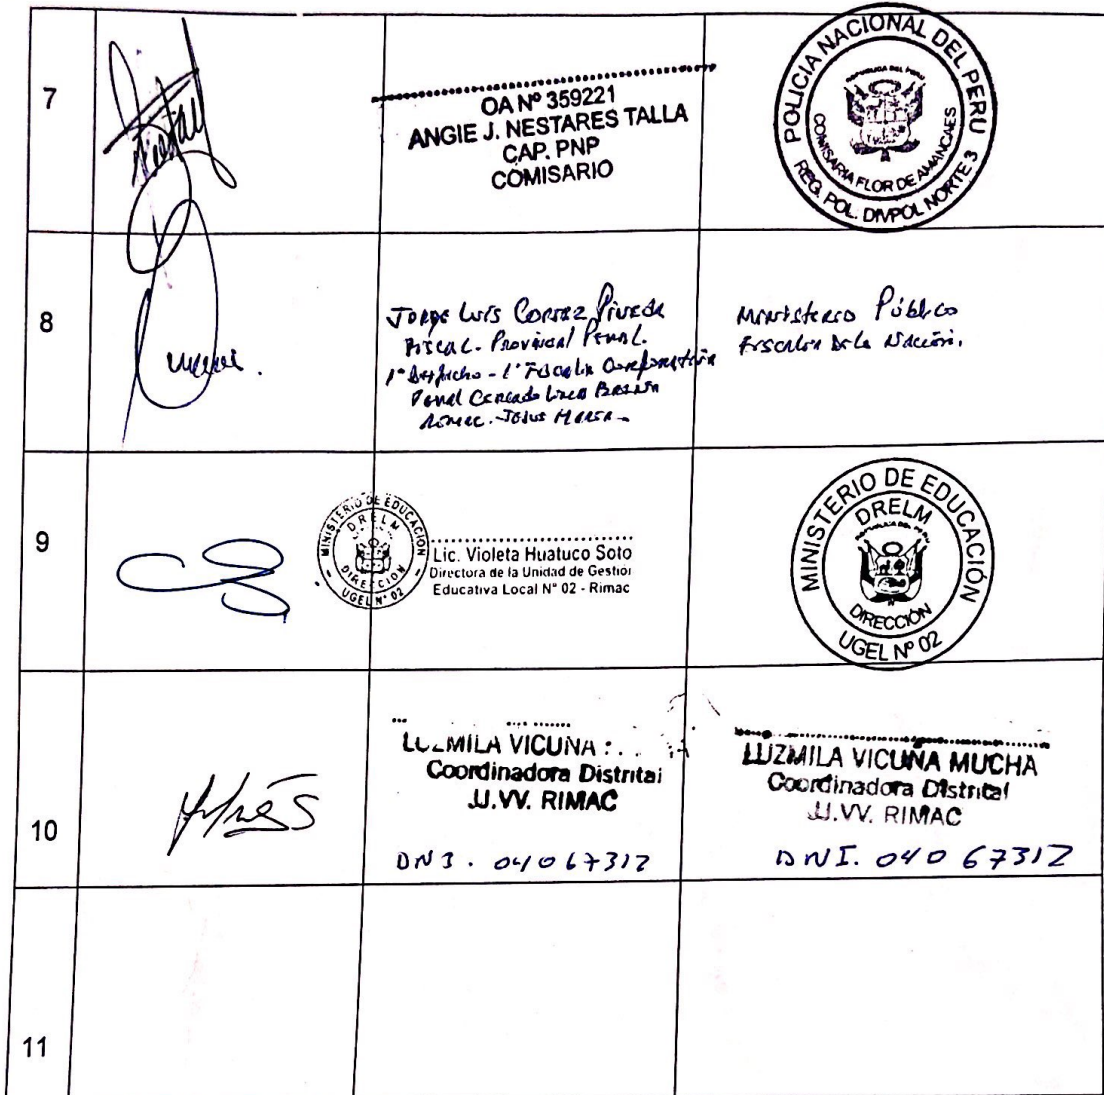 7
OA Nº 359221
ANGIE J. NESTARES TALLA
CAP. PNP
COMISARIO
POLICIA NACIONAL DEL PERU
REPUBLICA DEL PERU
COMISARIA FLOR DE AMANCAES
REG. POL. DIVPOL NORTE 3
8
Jorge Luis Cortez Pineda
Fiscal Provincial Penal.
1° Despacho - 1° Fiscalía Corporativa
Penal Cercado Lima Breña
Rimac - Jesus Maria -
Ministerio Público
Fiscalía de la Nación.
9
MINISTERIO DE EDUCACIÓN
DRELM
DIRECCIÓN
UGEL N° 02
Lic. Violeta Huatuco Soto
Directora de la Unidad de Gestión
Educativa Local N° 02 - Rimac
MINISTERIO DE EDUCACIÓN
DRELM
REPUBLICA DEL PERU
DIRECCIÓN
UGEL Nº 02
10
LUZMILA VICUÑA
Coordinadora Distrital
JJ.VV. RIMAC
DNI. 04067312
LUZMILA VICUÑA MUCHA
Coordinadora Distrital
JJ.VV. RIMAC
DNI. 04067312
11